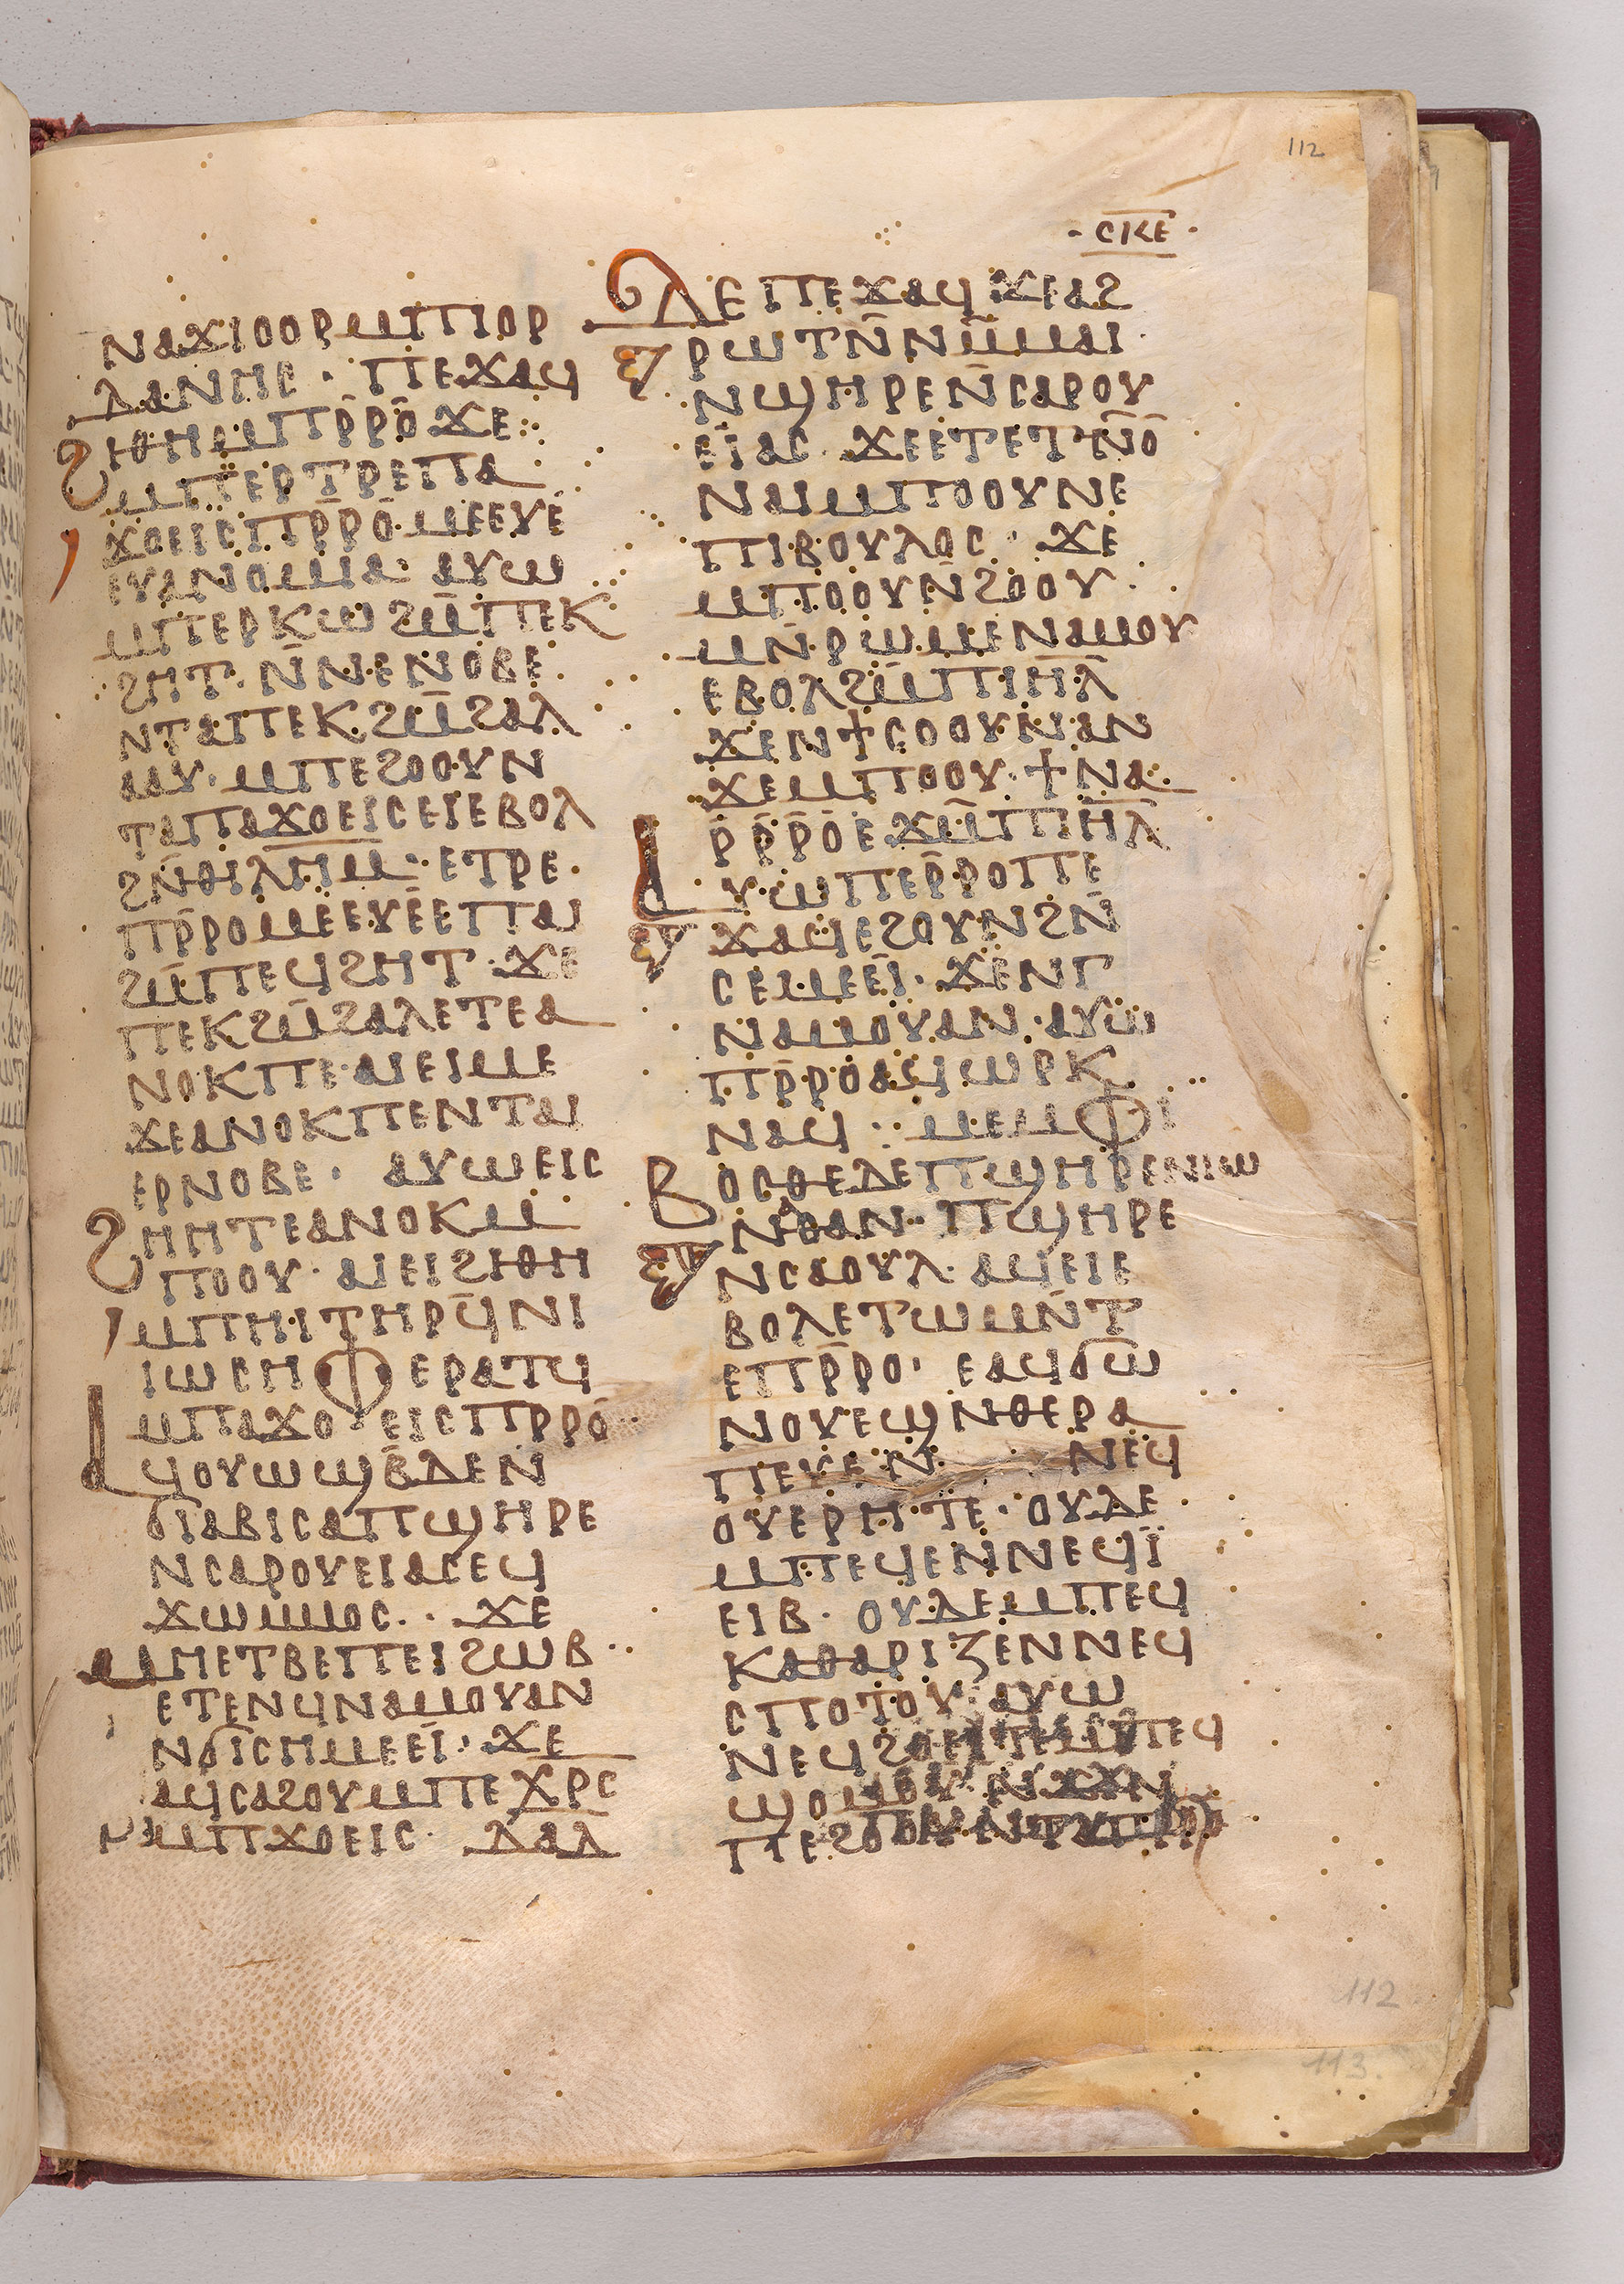 112
· ⲥⲕⲉ ·
ⲛⲁϫⲓⲟⲟⲣⲙⲡⲓⲟⲣ
ⲇⲁⲛⲏⲥ · ⲡⲉϫⲁϥ
ϩⲓⲑⲏⲙⲡⲣ̄ⲣⲟ̄ ϫⲉ
ⲙⲡⲉⲣⲧⲣⲉⲡⲁ
ϫⲟⲉⲓⲥⲡⲣ̄ⲣⲟ̄ · ⲙⲉⲉⲩⲉ
ⲉⲩⲁⲛⲟⲙⲓⲁ · ⲁⲩⲱ
ⲙⲡⲉⲣⲕⲱϩⲙ̄ⲡⲉⲕ
ϩⲏⲧ · ⲛ̄ⲛⲉⲛⲟⲃⲉ
ⲛⲧⲁⲡⲉⲕϩⲙ̄ϩⲁⲗ
ⲁⲁⲩ · ⲙⲡⲉϩⲟⲟⲩⲛ
ⲧⲁⲡⲁϫⲟⲉⲓⲥⲉⲓⲉⲃⲟⲗ
ϩⲛ̄ⲑⲓⲗⲏⲙ · ⲉⲧⲣⲉ
ⲡⲣ̄ⲣⲟⲙⲉⲉⲩⲉ̄ⲉⲡⲁⲓ
ϩⲙ̄ⲡⲉϥϩⲏⲧ · ϫⲉ
ⲡⲉⲕϩⲙ̄ϩⲁⲗⲉⲧⲉⲁ
ⲛⲟⲕⲡⲉ · ⲁⲓⲉⲓⲙⲉ
ϫⲉⲁⲛⲟⲕⲡⲉⲛⲧⲁⲓ
ⲉⲣⲛⲟⲃⲉ · ⲁⲩⲱⲉⲓⲥ
ϩⲏⲏⲧⲉⲁⲛⲟⲕⲙ
ⲡⲟⲟⲩ · ⲁⲓⲉⲓϩⲓⲑⲏ
ⲙⲡⲏⲓⲧⲏⲣϥ̄ⲛⲓ
ⲓⲱⲥⲏⲫⲉⲣⲁⲧϥ
ⲙⲡⲁϫⲟⲉⲓⲥⲡⲣⲣⲟ̄ ·
ⲁϥⲟⲩⲱϣⲃ̄ⲇⲉⲛ
ϭⲓⲁⲃⲓⲥⲁⲡϣⲏⲣⲉ
ⲛⲥⲁⲣⲟⲩⲉⲓⲁⲥⲉϥ
ϫⲱⲙⲙⲟⲥ · · ϫⲉ
ⲙⲏⲉⲧⲃⲉⲡⲉⲓϩⲱⲃ ·
ⲉⲧⲉⲛϥⲛⲁⲙⲟⲩⲁⲛ
ⲛϭⲓⲥⲏⲙⲉⲉⲓ̈ · ϫⲉ
ⲁϥⲥⲁϩⲟⲩⲙⲡⲉⲭⲣⲥ
ⲙⲡϫⲟⲉⲓⲥ · ⲇⲁⲇ
ⲇⲉⲡⲉϫⲁϥ ϫⲉⲁϩ
ⲣⲱⲧⲛ̄ⲛⲙ̄ⲙⲁⲓ ·
ⲛϣⲏⲣⲉⲛ̄ⲥⲁⲣⲟⲩ
ⲉⲓ̈ⲁⲥ · ϫⲉⲉⲧⲉⲧⲛ̄ⲟ̄
ⲛⲁⲓⲙⲡⲟⲟⲩⲛⲉ
ⲡⲓⲃⲟⲩⲗⲟⲥ · ϫⲉ
ⲙⲡⲟⲟⲩⲛ̄ϩⲟⲟⲩ ·
ⲙⲛ̄ⲣⲱⲙⲉⲛⲁⲙⲟⲩ
ⲉⲃⲟⲗϩⲙ̄ⲡⲓⲏ̄ⲗ̄
ϫⲉⲛϯⲥⲟⲟⲩⲛⲁⲛ
ϫⲉⲙⲡⲟⲟⲩ · ϯⲛⲁ
ⲣⲣ̄ⲣⲟⲉϫⲙ̄ⲡⲓⲏ̄ⲗ̄
ⲁⲩⲱⲡⲉⲣ̄ⲣⲟⲡⲉ
ϫⲁϥⲉϩⲟⲩⲛϩⲛ̄
ⲥⲉⲙⲉⲉⲓ̈ · ϫⲉⲛⲅ
ⲛⲁⲙⲟⲩⲁⲛ · ⲁⲩⲱ
ⲡⲣ̄ⲣⲟⲁϥⲱⲣⲕ
ⲛⲁϥ : ⲙⲉⲙⲫⲓ
ⲃⲟⲥⲑⲉⲇⲉⲡϣⲏⲣⲉⲛⲓⲱ
ⲛⲁⲑⲁⲛ · ⲡϣⲏⲣⲉ
ⲛⲥⲁⲟⲩⲗ · ⲁϥⲉⲓⲉ
ⲃⲟⲗⲉⲧⲱⲙⲛ̄ⲧ
ⲉⲡⲣ̄ⲣⲟ · ⲉⲁϥϭⲱ
ⲛⲟⲩⲉϣⲛⲑⲉⲣⲁ
ⲡⲉⲩⲉⲛ ⲛⲉϥ
ⲟⲩⲉⲣⲏⲧⲉ · ⲟⲩⲇⲉ
ⲙⲡⲉϥⲉⲛⲛⲉϥⲓ̈
ⲉⲓⲃ · ⲟⲩⲇⲉⲙⲡⲉϥ
ⲕⲁⲑⲁⲣⲓⲍⲉⲛⲛⲉϥ
ⲥⲡⲟⲧⲟⲩ · ⲁⲩⲱ
ⲛⲉϥϩⲟⲉⲓⲧⲉⲙⲡⲉϥ
ϣⲟⲙⲟⲩ
ⲡⲉϩⲟⲟⲩ
112
113.